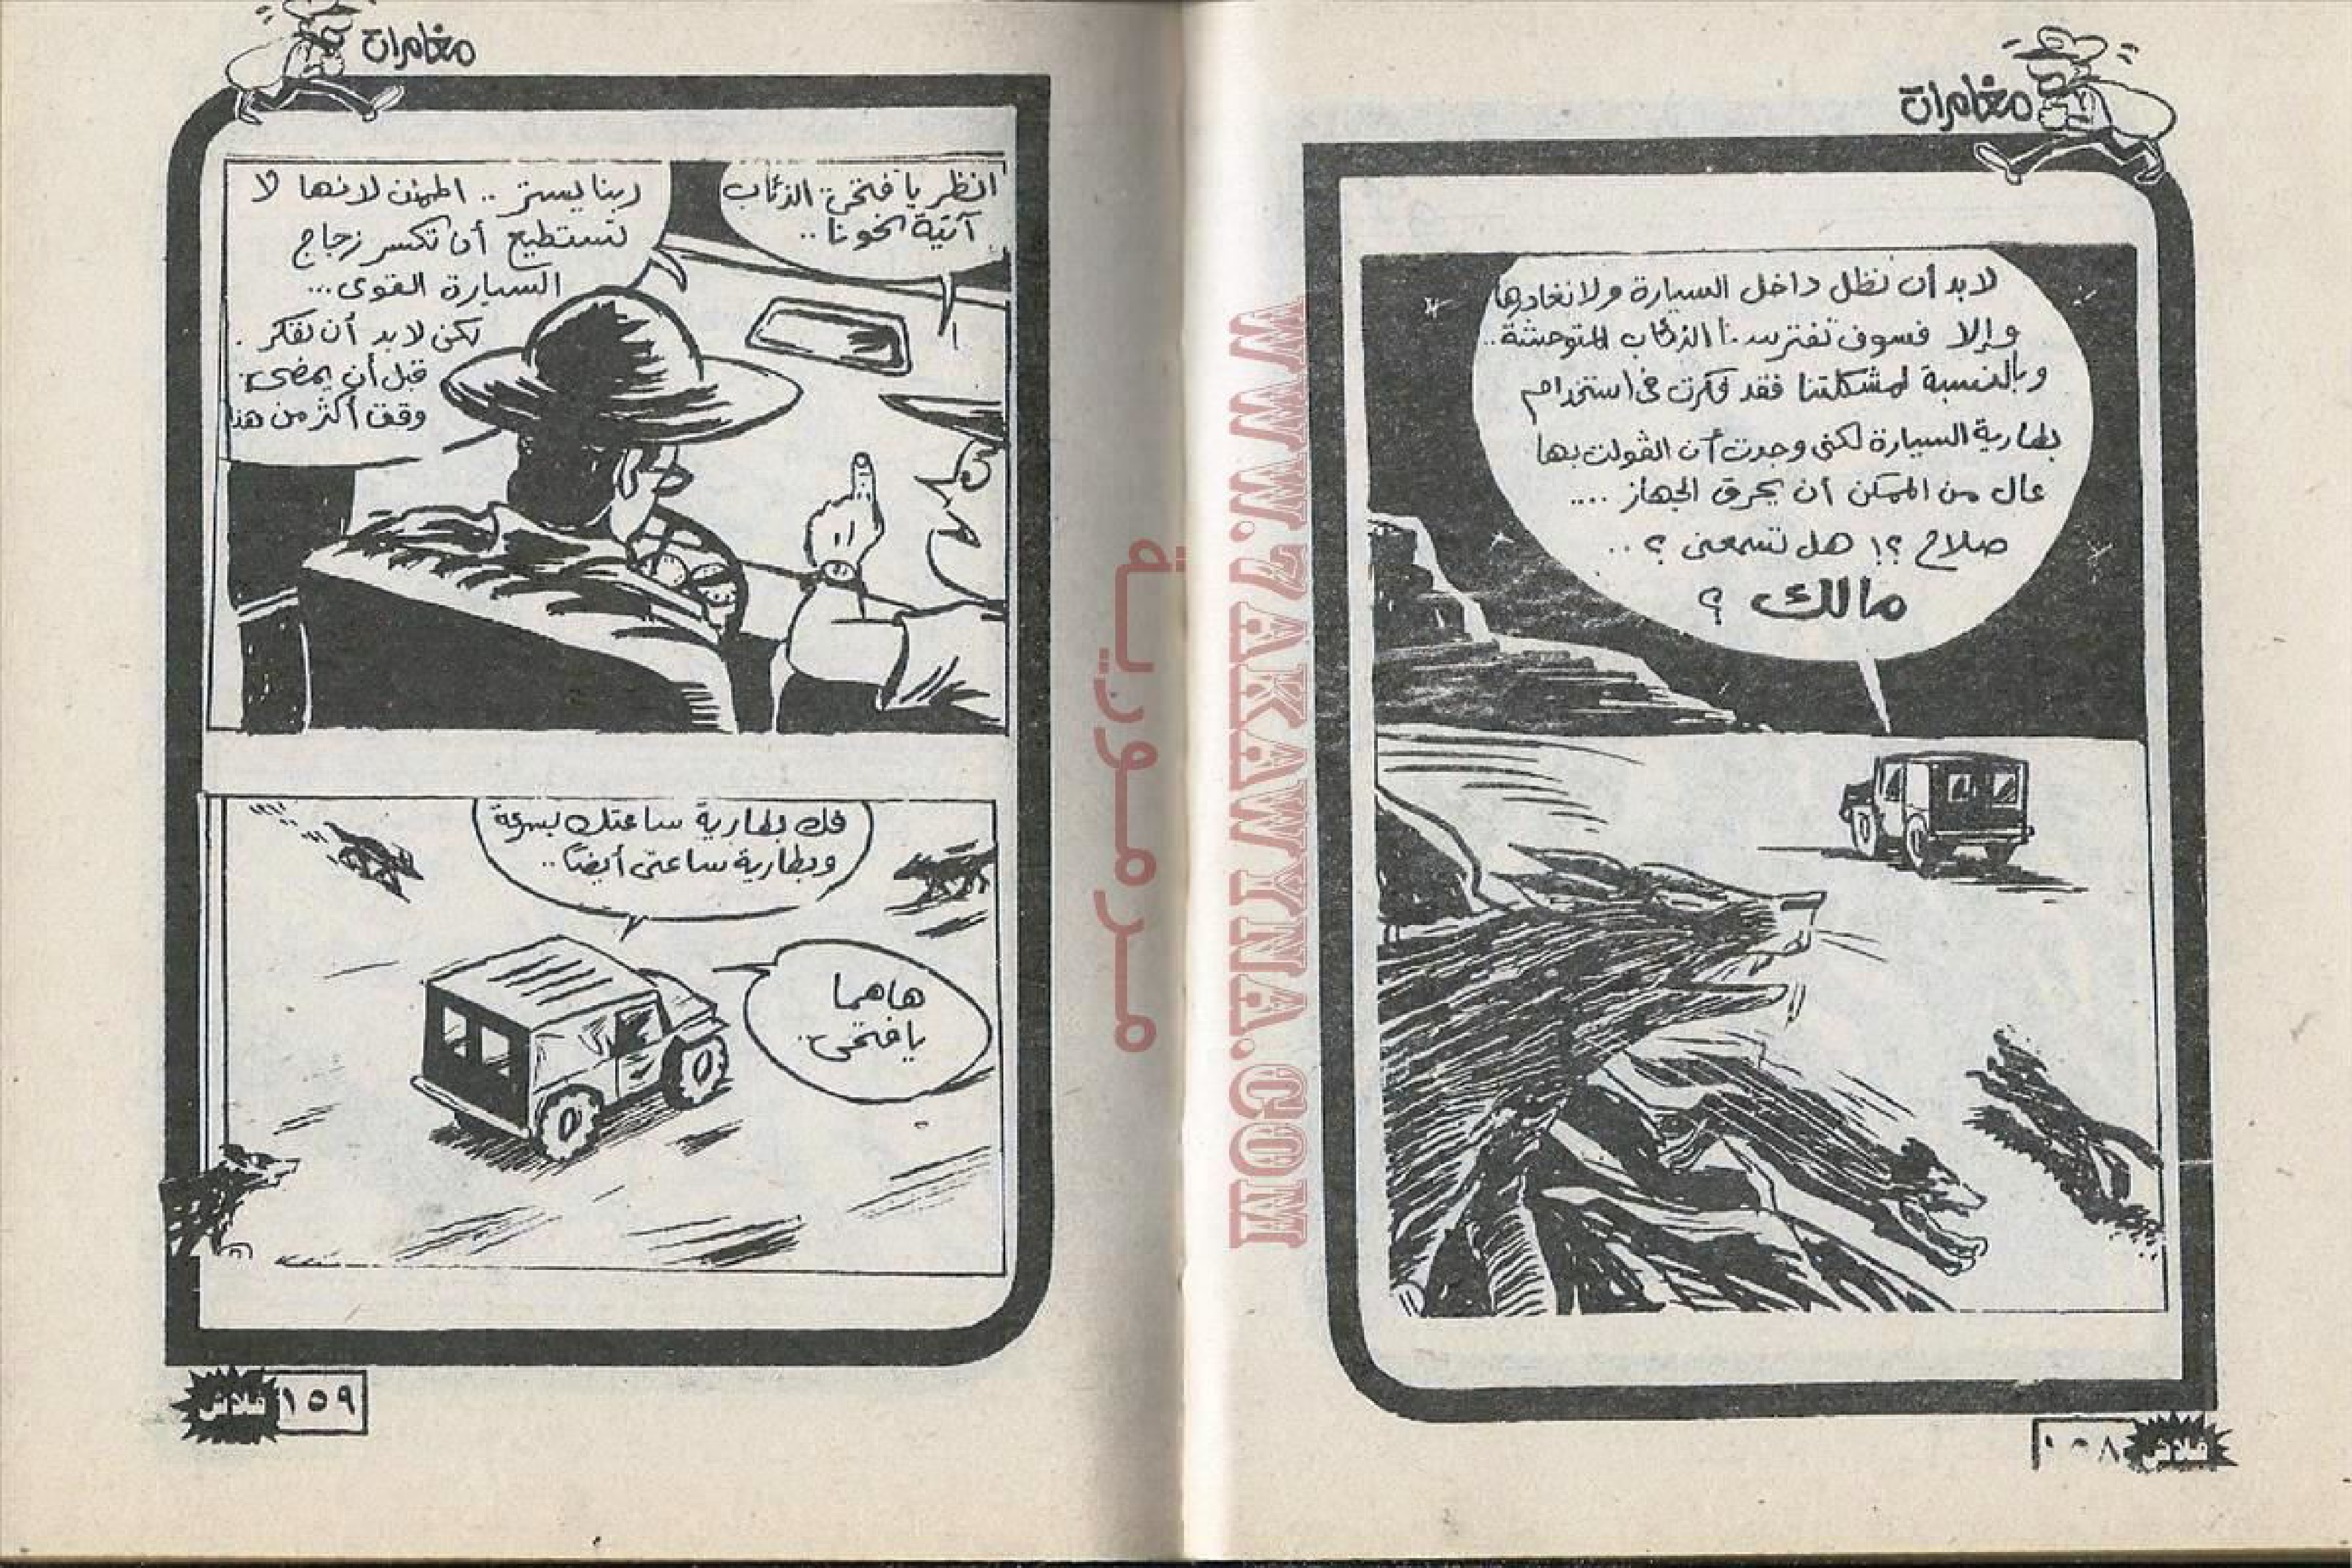 مغامرات
لابد أن نظل داخل السيارة ولانغادرها
وإلا فسوف تفترسنا الذئاب المتوحشة..
وبالنسبة لمشكلتنا فقد فكرت فى استخدام
بطارية السيارة لكنى وجدت أن الڤولت بها
عال من الممكن أن يحرق الجهاز ....
صلاح ؟! هل تسمعنى ؟ ..
مالك ؟
١٥٨
فلاش
مغامرات
انظر يا فتحى الذئاب
آتية نحونا ..
ربنا يستر .. اطمئن لانها لا
تستطيع أن تكسر زجاج
السيارة القوى...
لكن لابد أن نفكر .
قبل أن يمضى
وقت أكثر من هذا
فك بطارية ساعتك بسرعة
وبطارية ساعتى أيضاً..
هاهما
يا فتحى..
١٥٩
فلاش
مرمورية
WWW.7AKAWYNA.COM